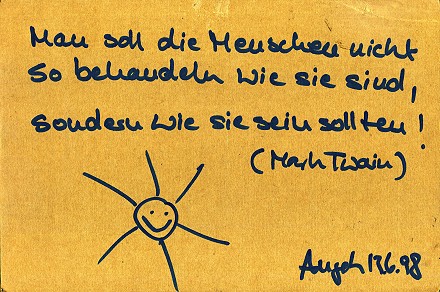 Man soll die Menschen nicht
so behandeln wie sie sind,
sondern wie sie sein sollten!
(Mark Twain)
13.6.98